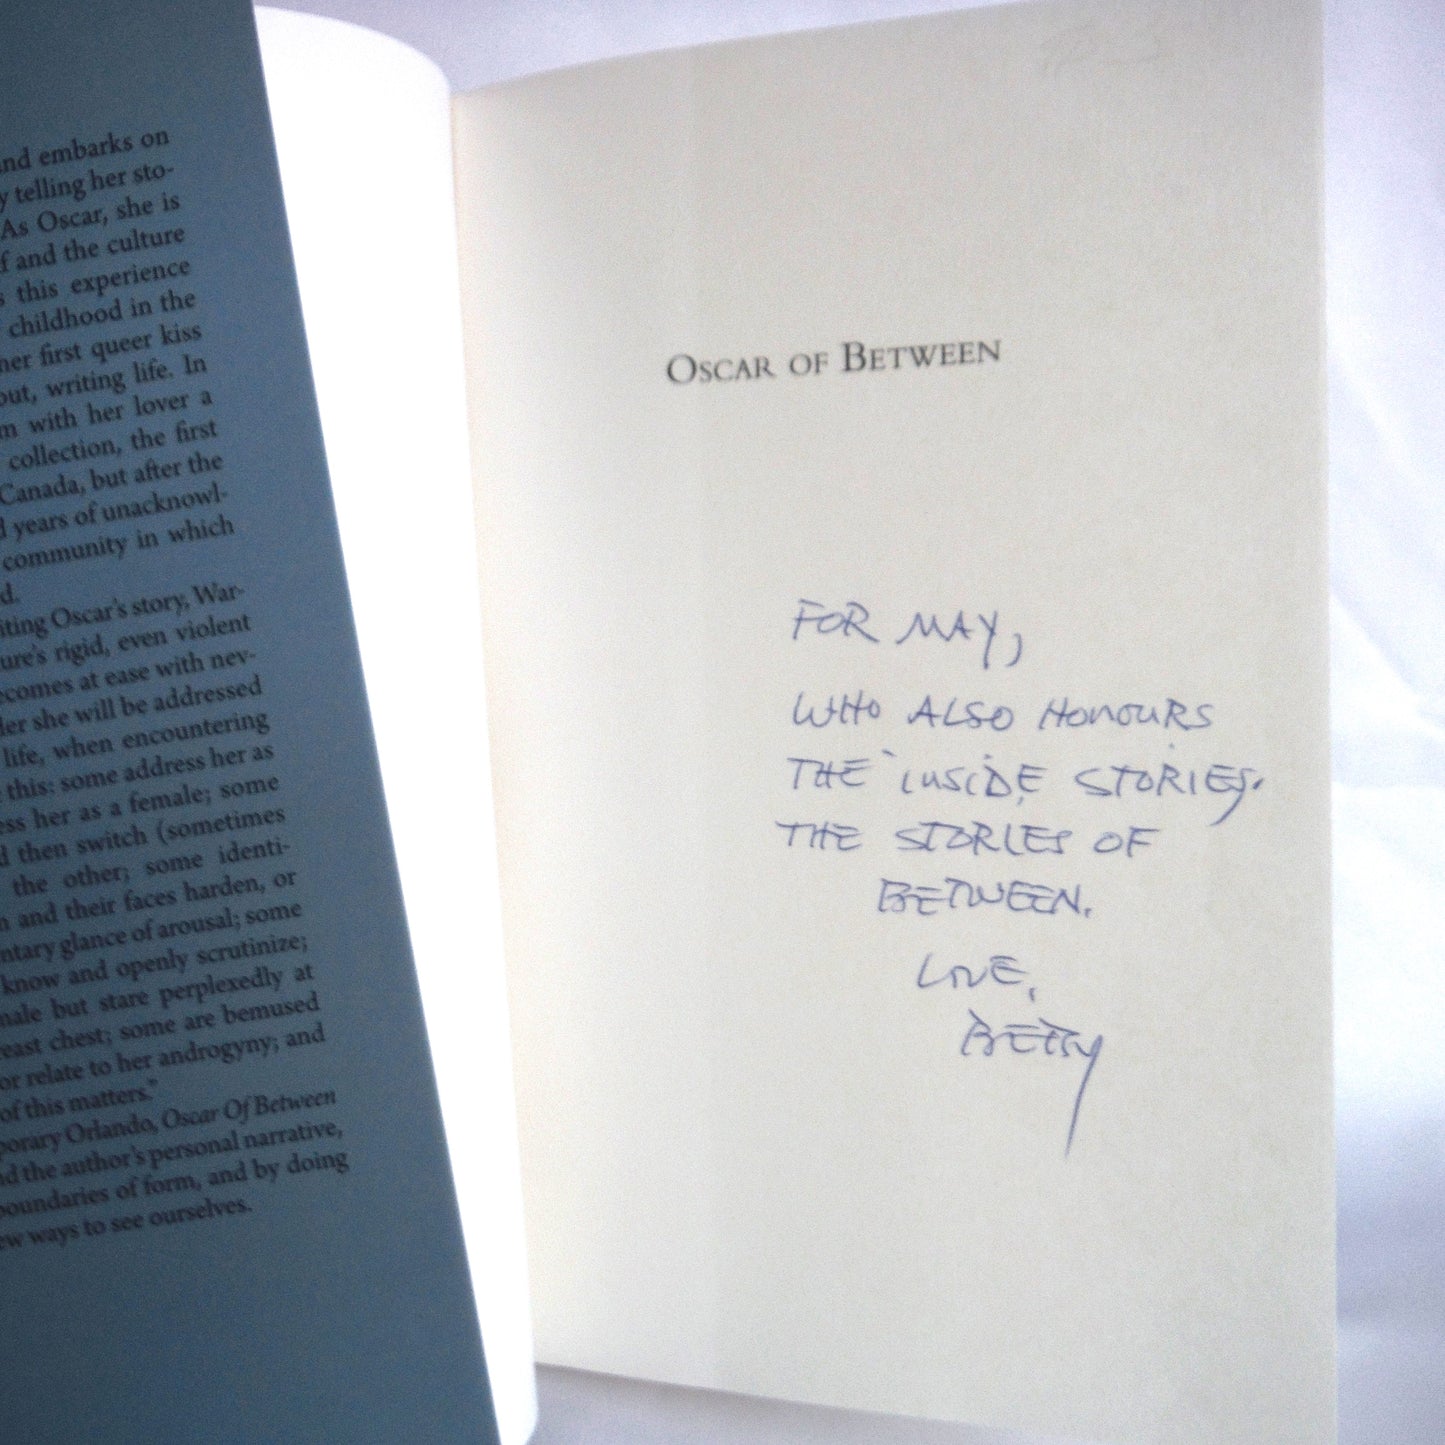 nd embarks on
y telling her sto-
As Oscar, she is
f and the culture
s this experience
childhood in the
her first queer kiss
out, writing life. In
m with her lover a
collection, the first
Canada, but after the
d years of unacknowl-
community in which
d.
iting Oscar's story, War-
ure's rigid, even violent
ecomes at ease with nev-
der she will be addressed
life, when encountering
this: some address her as
ess her as a female; some
d then switch (sometimes
the other; some identi-
n and their faces harden, or
ntary glance of arousal; some
know and openly scrutinize;
male but stare perplexedly at
reast chest; some are bemused
or relate to her androgyny; and
of this matters."
porary Orlando, Oscar Of Between
nd the author's personal narrative,
boundaries of form, and by doing
ew ways to see ourselves.
OSCAR OF BETWEEN
FOR MAY,
WHO ALSO HONOURS
THE INSIDE STORIES.
THE STORIES OF
BETWEEN.
LOVE,
BETSY